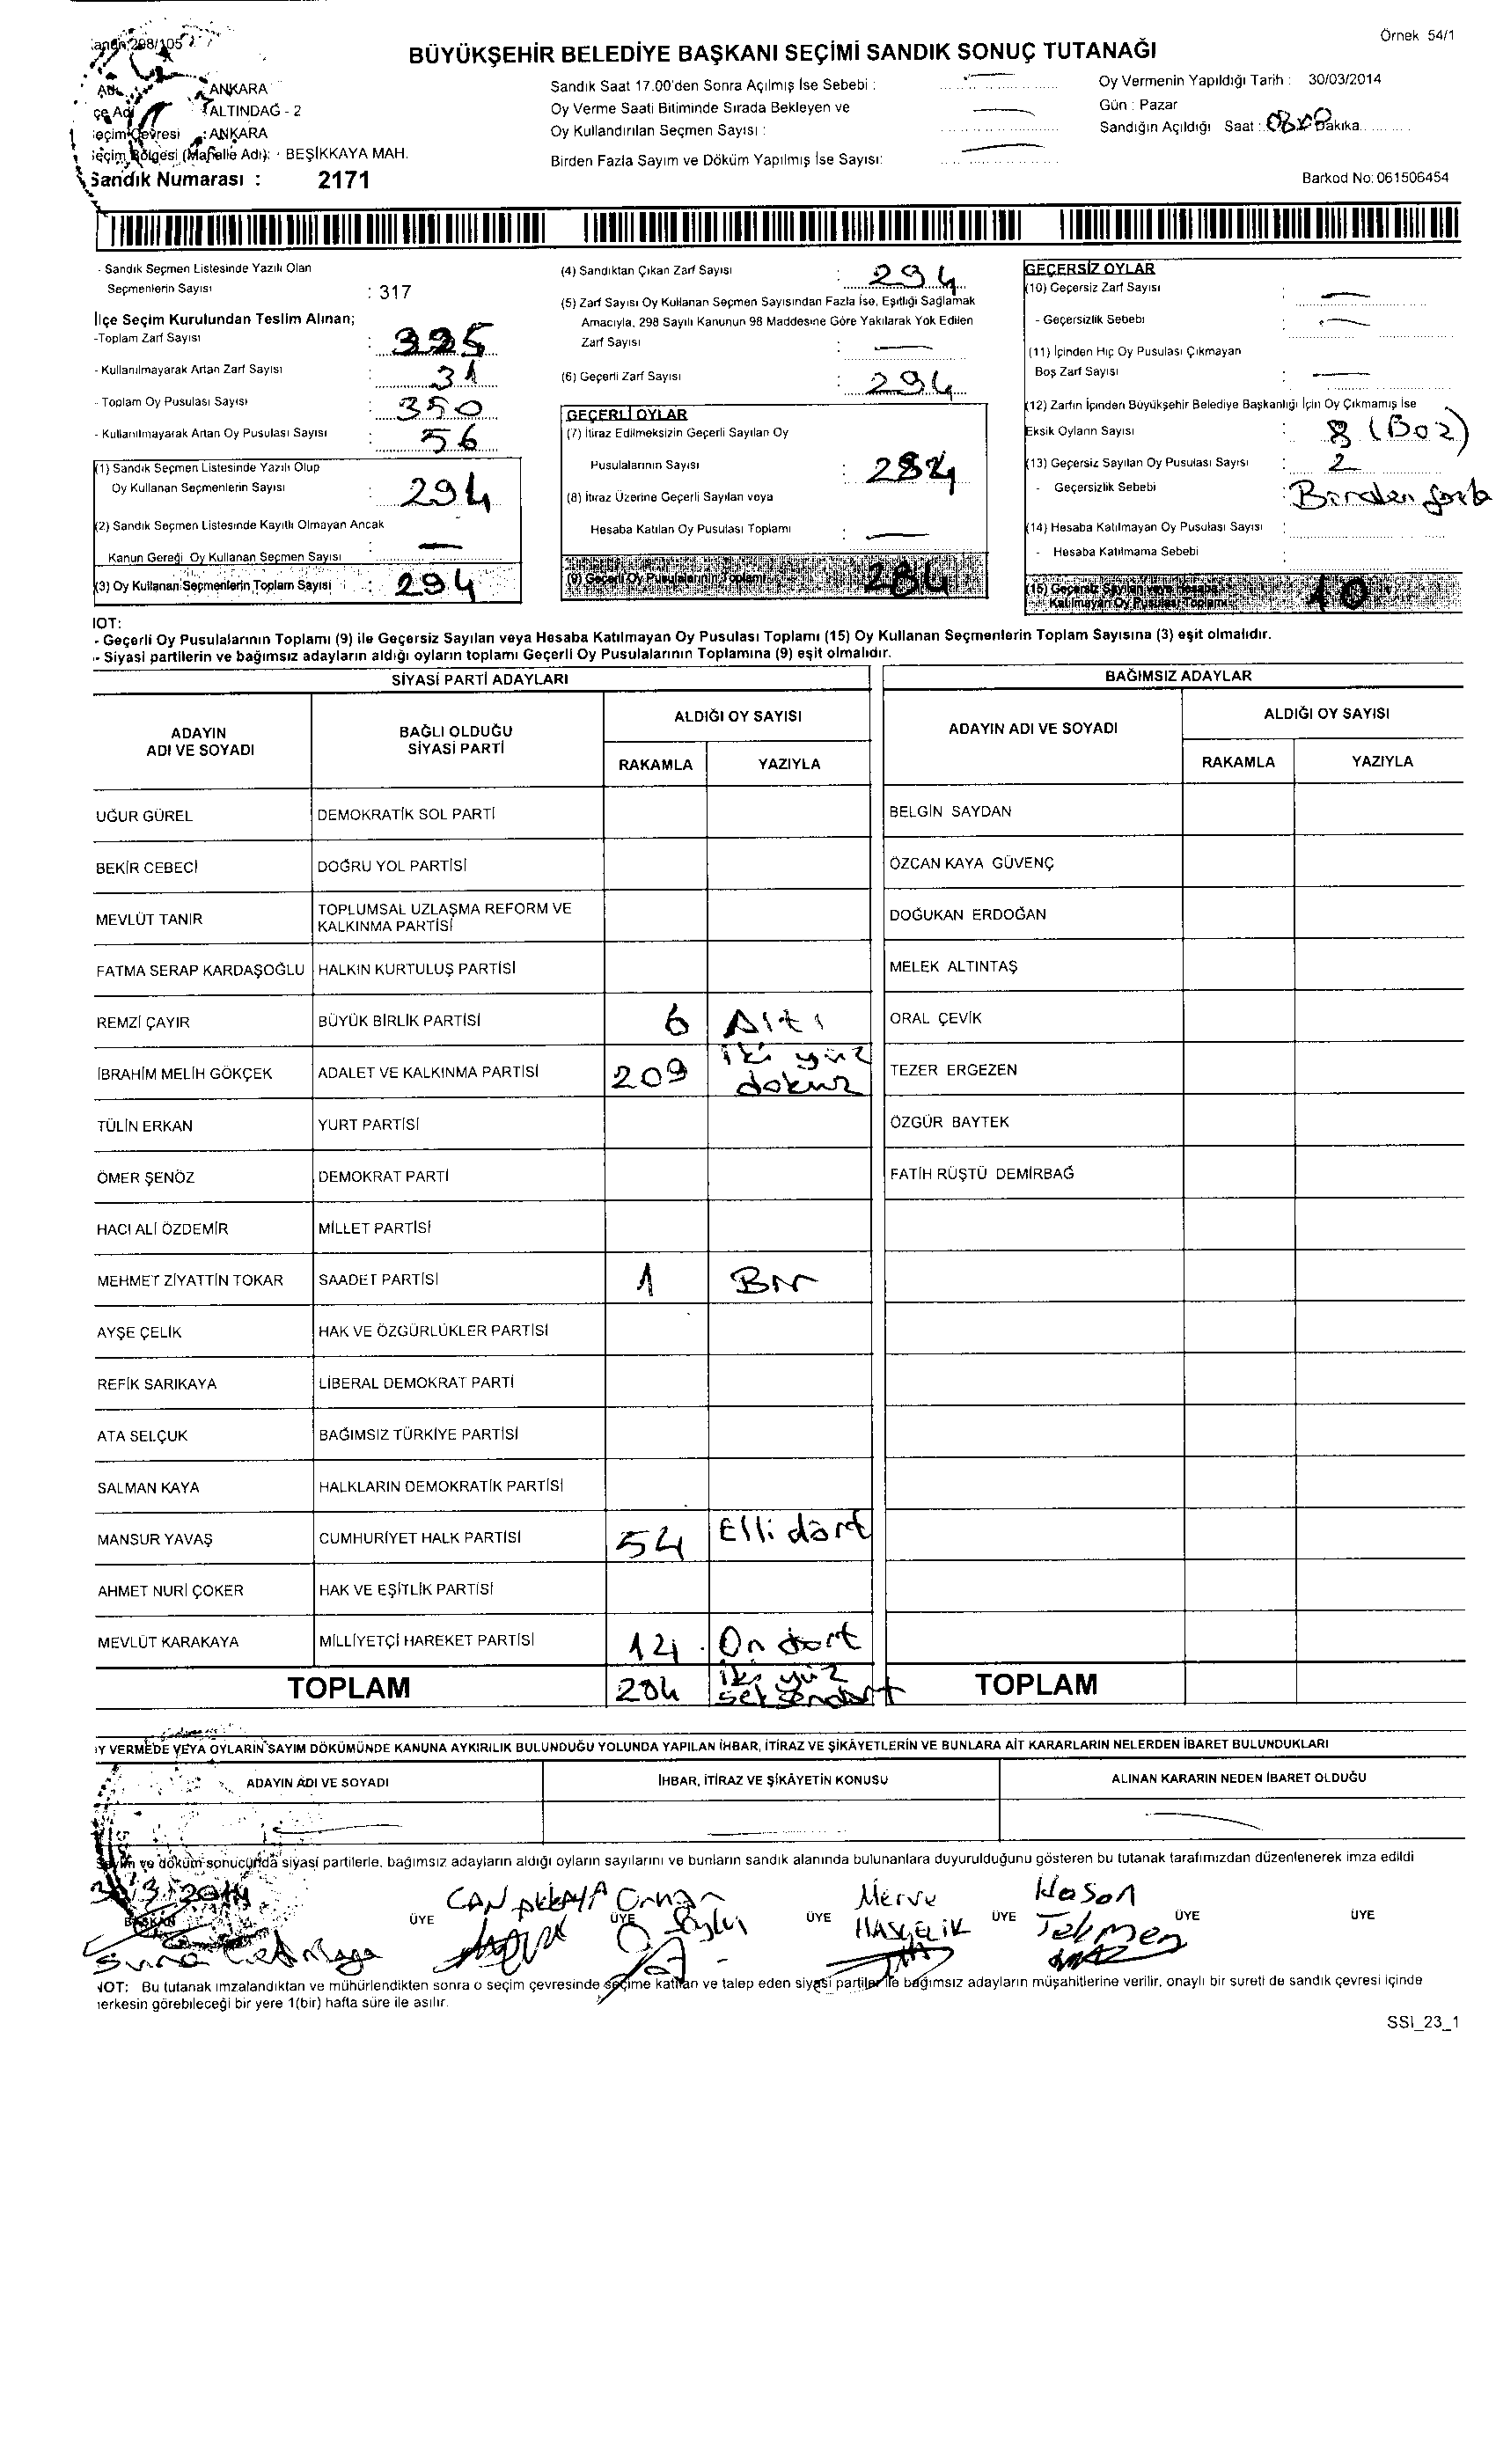 Örnek 54/1
BÜYÜKŞEHİR BELEDİYE BAŞKANI SEÇİMİ SANDIK SONUÇ TUTANAĞI
298/105
: ANKARA
ALTINDAĞ - 2
Seçim Çevresi : ANKARA
Seçim Bölgesi (Mahalle Adı): BEŞİKKAYA MAH.
Sandık Numarası : 2171
Sandık Saat 17.00'den Sonra Açılmış İse Sebebi :
Oy Verme Saati Bitiminde Sırada Bekleyen ve
Oy Kullandırılan Seçmen Sayısı :
Birden Fazla Sayım ve Döküm Yapılmış İse Sayısı:
Oy Vermenin Yapıldığı Tarih : 30/03/2014
Gün : Pazar
Sandığın Açıldığı Saat : Dakika
Barkod No: 061506454
- Sandık Seçmen Listesinde Yazılı Olan
Seçmenlerin Sayısı : 317
İlçe Seçim Kurulundan Teslim Alınan;
-Toplam Zarf Sayısı : 325
- Kullanılmayarak Artan Zarf Sayısı : 31
- Toplam Oy Pusulası Sayısı : 350
- Kullanılmayarak Artan Oy Pusulası Sayısı : 56
(1) Sandık Seçmen Listesinde Yazılı Olup
Oy Kullanan Seçmenlerin Sayısı : 294
(2) Sandık Seçmen Listesinde Kayıtlı Olmayan Ancak
Kanun Gereği Oy Kullanan Seçmen Sayısı : —
(3) Oy Kullanan Seçmenlerin Toplam Sayısı : 294
(4) Sandıktan Çıkan Zarf Sayısı : 294
(5) Zarf Sayısı Oy Kullanan Seçmen Sayısından Fazla İse, Eşitliği Sağlamak
Amacıyla, 298 Sayılı Kanunun 98 Maddesine Göre Yakılarak Yok Edilen
Zarf Sayısı : —
(6) Geçerli Zarf Sayısı : 294
GEÇERLİ OYLAR
(7) İtiraz Edilmeksizin Geçerli Sayılan Oy
Pusulalarının Sayısı : 284
(8) İtiraz Üzerine Geçerli Sayılan veya
Hesaba Katılan Oy Pusulası Toplamı : —
(9) Geçerli Oy Pusulalarının Toplamı 284
GEÇERSİZ OYLAR
(10) Geçersiz Zarf Sayısı : —
- Geçersizlik Sebebi : —
(11) İçinden Hiç Oy Pusulası Çıkmayan
Boş Zarf Sayısı : —
(12) Zarfın İçinden Büyükşehir Belediye Başkanlığı İçin Oy Çıkmamış İse
Eksik Oyların Sayısı : 8 (Boş)
(13) Geçersiz Sayılan Oy Pusulası Sayısı : 2
- Geçersizlik Sebebi : Birden fazla
(14) Hesaba Katılmayan Oy Pusulası Sayısı :
- Hesaba Katılmama Sebebi :
(15) Geçersiz Sayılan veya Hesaba
Katılmayan Oy Pusulası Toplamı 10
NOT:
- Geçerli Oy Pusulalarının Toplamı (9) ile Geçersiz Sayılan veya Hesaba Katılmayan Oy Pusulası Toplamı (15) Oy Kullanan Seçmenlerin Toplam Sayısına (3) eşit olmalıdır.
- Siyasi partilerin ve bağımsız adayların aldığı oyların toplamı Geçerli Oy Pusulalarının Toplamına (9) eşit olmalıdır.
SİYASİ PARTİ ADAYLARI
ADAYIN ADI VE SOYADI BAĞLI OLDUĞU SİYASİ PARTİ ALDIĞI OY SAYISI
RAKAMLA YAZIYLA
UĞUR GÜREL DEMOKRATİK SOL PARTİ
BEKİR CEBECİ DOĞRU YOL PARTİSİ
MEVLÜT TANIR TOPLUMSAL UZLAŞMA REFORM VE KALKINMA PARTİSİ
FATMA SERAP KARDAŞOĞLU HALKIN KURTULUŞ PARTİSİ
REMZİ ÇAYIR BÜYÜK BİRLİK PARTİSİ 6 Altı
İBRAHİM MELİH GÖKÇEK ADALET VE KALKINMA PARTİSİ 209 iki yüz dokuz
TÜLİN ERKAN YURT PARTİSİ
ÖMER ŞENÖZ DEMOKRAT PARTİ
HACI ALİ ÖZDEMİR MİLLET PARTİSİ
MEHMET ZİYATTİN TOKAR SAADET PARTİSİ 1 Bir
AYŞE ÇELİK HAK VE ÖZGÜRLÜKLER PARTİSİ
REFİK SARIKAYA LİBERAL DEMOKRAT PARTİ
ATA SELÇUK BAĞIMSIZ TÜRKİYE PARTİSİ
SALMAN KAYA HALKLARIN DEMOKRATİK PARTİSİ
MANSUR YAVAŞ CUMHURİYET HALK PARTİSİ 54 Elli dört
AHMET NURİ ÇOKER HAK VE EŞİTLİK PARTİSİ
MEVLÜT KARAKAYA MİLLİYETÇİ HAREKET PARTİSİ 14 On dört
TOPLAM 284 iki yüz seksendört
BAĞIMSIZ ADAYLAR
ADAYIN ADI VE SOYADI ALDIĞI OY SAYISI
RAKAMLA YAZIYLA
BELGİN SAYDAN
ÖZCAN KAYA GÜVENÇ
DOĞUKAN ERDOĞAN
MELEK ALTINTAŞ
ORAL ÇEVİK
TEZER ERGEZEN
ÖZGÜR BAYTEK
FATİH RÜŞTÜ DEMİRBAĞ
TOPLAM
OY VERMEDE VEYA OYLARIN SAYIM DÖKÜMÜNDE KANUNA AYKIRILIK BULUNDUĞU YOLUNDA YAPILAN İHBAR, İTİRAZ VE ŞİKÂYETLERİN VE BUNLARA AİT KARARLARIN NELERDEN İBARET BULUNDUKLARI
ADAYIN ADI VE SOYADI İHBAR, İTİRAZ VE ŞİKÂYETİN KONUSU ALINAN KARARIN NEDEN İBARET OLDUĞU
Sayım ve döküm sonucunda siyasi partilerle, bağımsız adayların aldığı oyların sayılarını ve bunların sandık alanında bulunanlara duyurulduğunu gösteren bu tutanak tarafımızdan düzenlenerek imza edildi
30/3/2014
BAŞKAN ÜYE ÜYE ÜYE ÜYE ÜYE ÜYE
CAN Orhan Merve Hasan
NOT: Bu tutanak imzalandıktan ve mühürlendikten sonra o seçim çevresinde seçime katılan ve talep eden siyasi partiler ile bağımsız adayların müşahitlerine verilir, onaylı bir sureti de sandık çevresi içinde
herkesin görebileceği bir yere 1(bir) hafta süre ile asılır.
SSI_23_1